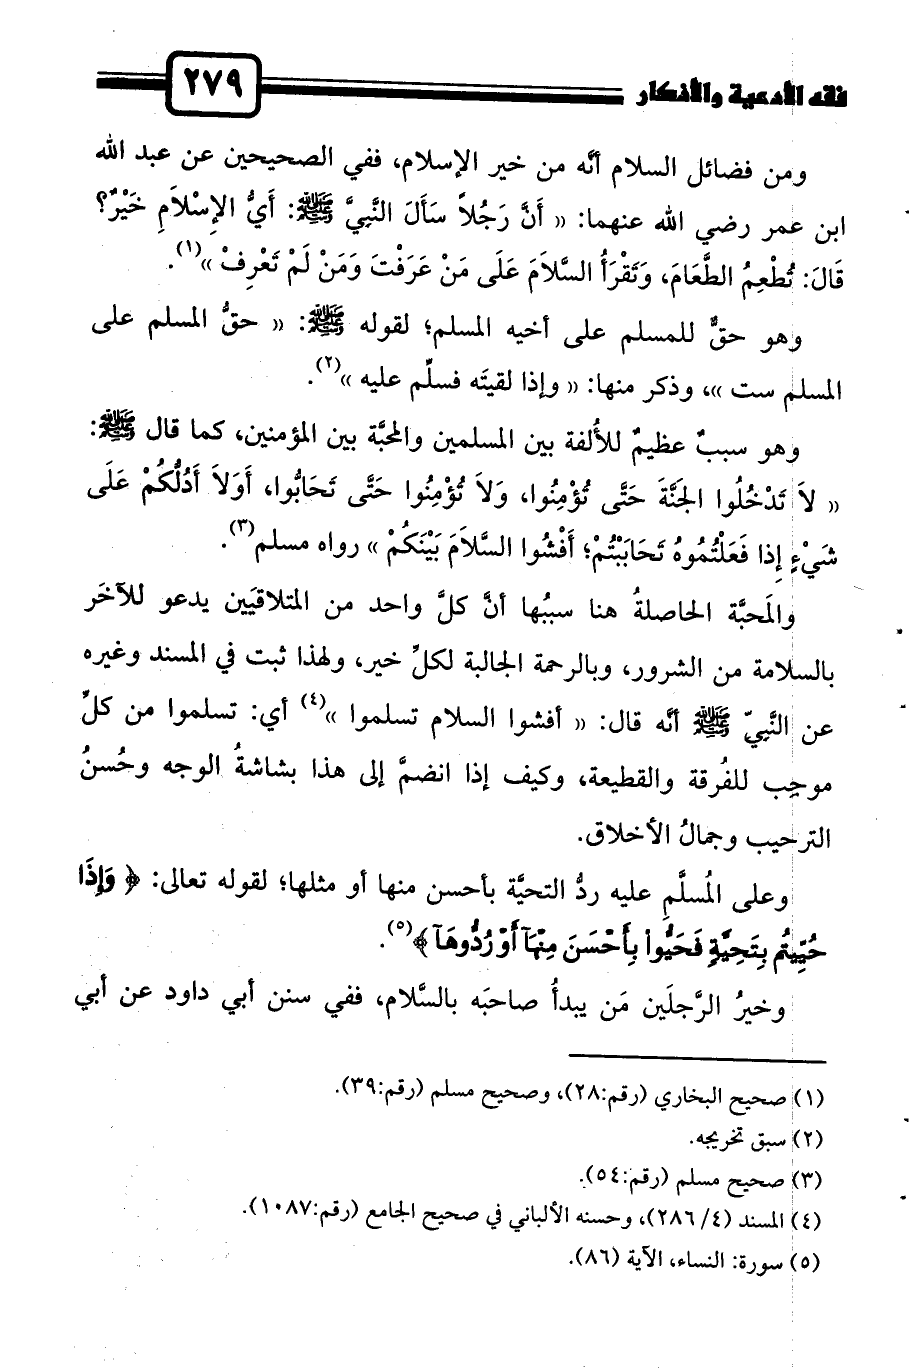 فقه الأدعية والأذكار
٢٧٩
ومن فضائل السلام أنَّه من خير الإسلام، ففي الصحيحين عن عبد الله
ابن عمر رضي الله عنهما: « أَنَّ رَجُلاً سَأَلَ النَّبِيَّ ﷺ: أَيُّ الإِسْلاَمِ خَيْرٌ؟
قَالَ: تُطْعِمُ الطَّعَامَ، وَتَقْرَأُ السَّلاَمَ عَلَى مَنْ عَرَفْتَ وَمَنْ لَمْ تَعْرِفْ »(١).
وهو حقٌّ للمسلم على أخيه المسلم؛ لقوله ﷺ: « حقُّ المسلم على
المسلم ست »، وذكر منها: « وإذا لقيتَه فسلِّم عليه »(٢).
وهو سببٌ عظيمٌ للأُلفة بين المسلمين والمحبَّة بين المؤمنين، كما قال ﷺ:
« لاَ تَدْخُلُوا الجَنَّةَ حَتَّى تُؤْمِنُوا، وَلاَ تُؤْمِنُوا حَتَّى تَحَابُّوا، أَوَلاَ أَدُلُّكُمْ عَلَى
شَيْءٍ إِذَا فَعَلْتُمُوهُ تَحَابَبْتُمْ؛ أَفْشُوا السَّلاَمَ بَيْنَكُمْ » رواه مسلم(٣).
والمَحبَّة الحاصلةُ هنا سببُها أنَّ كلَّ واحد من المتلاقيَين يدعو للآخَر
بالسلامة من الشرور، وبالرحمة الجالبة لكلِّ خير، ولهذا ثبت في المسند وغيره
عن النَّبيّ ﷺ أنَّه قال: « أفشوا السلام تسلموا »(٤) أي: تسلموا من كلِّ
موجِب للفُرقة والقطيعة، وكيف إذا انضمَّ إلى هذا بشاشةُ الوجه وحُسنُ
الترحيب وجمالُ الأخلاق.
وعلى المُسلَّمِ عليه ردُّ التحيَّة بأحسن منها أو مثلها؛ لقوله تعالى: ﴿ وَإِذَا
حُيِّيتُم بِتَحِيَّةٍ فَحَيُّواْ بِأَحْسَنَ مِنْهَآ أَوْ رُدُّوهَآ ﴾(٥).
وخيرُ الرَّجلَين مَن يبدأُ صاحبَه بالسَّلام، ففي سنن أبي داود عن أبي
(١) صحيح البخاري (رقم:٢٨)، وصحيح مسلم (رقم:٣٩).
(٢) سبق تخريجه.
(٣) صحيح مسلم (رقم:٥٤).
(٤) المسند (٤/ ٢٨٦)، وحسنه الألباني في صحيح الجامع (رقم:١٠٨٧).
(٥) سورة: النساء، الآية (٨٦).